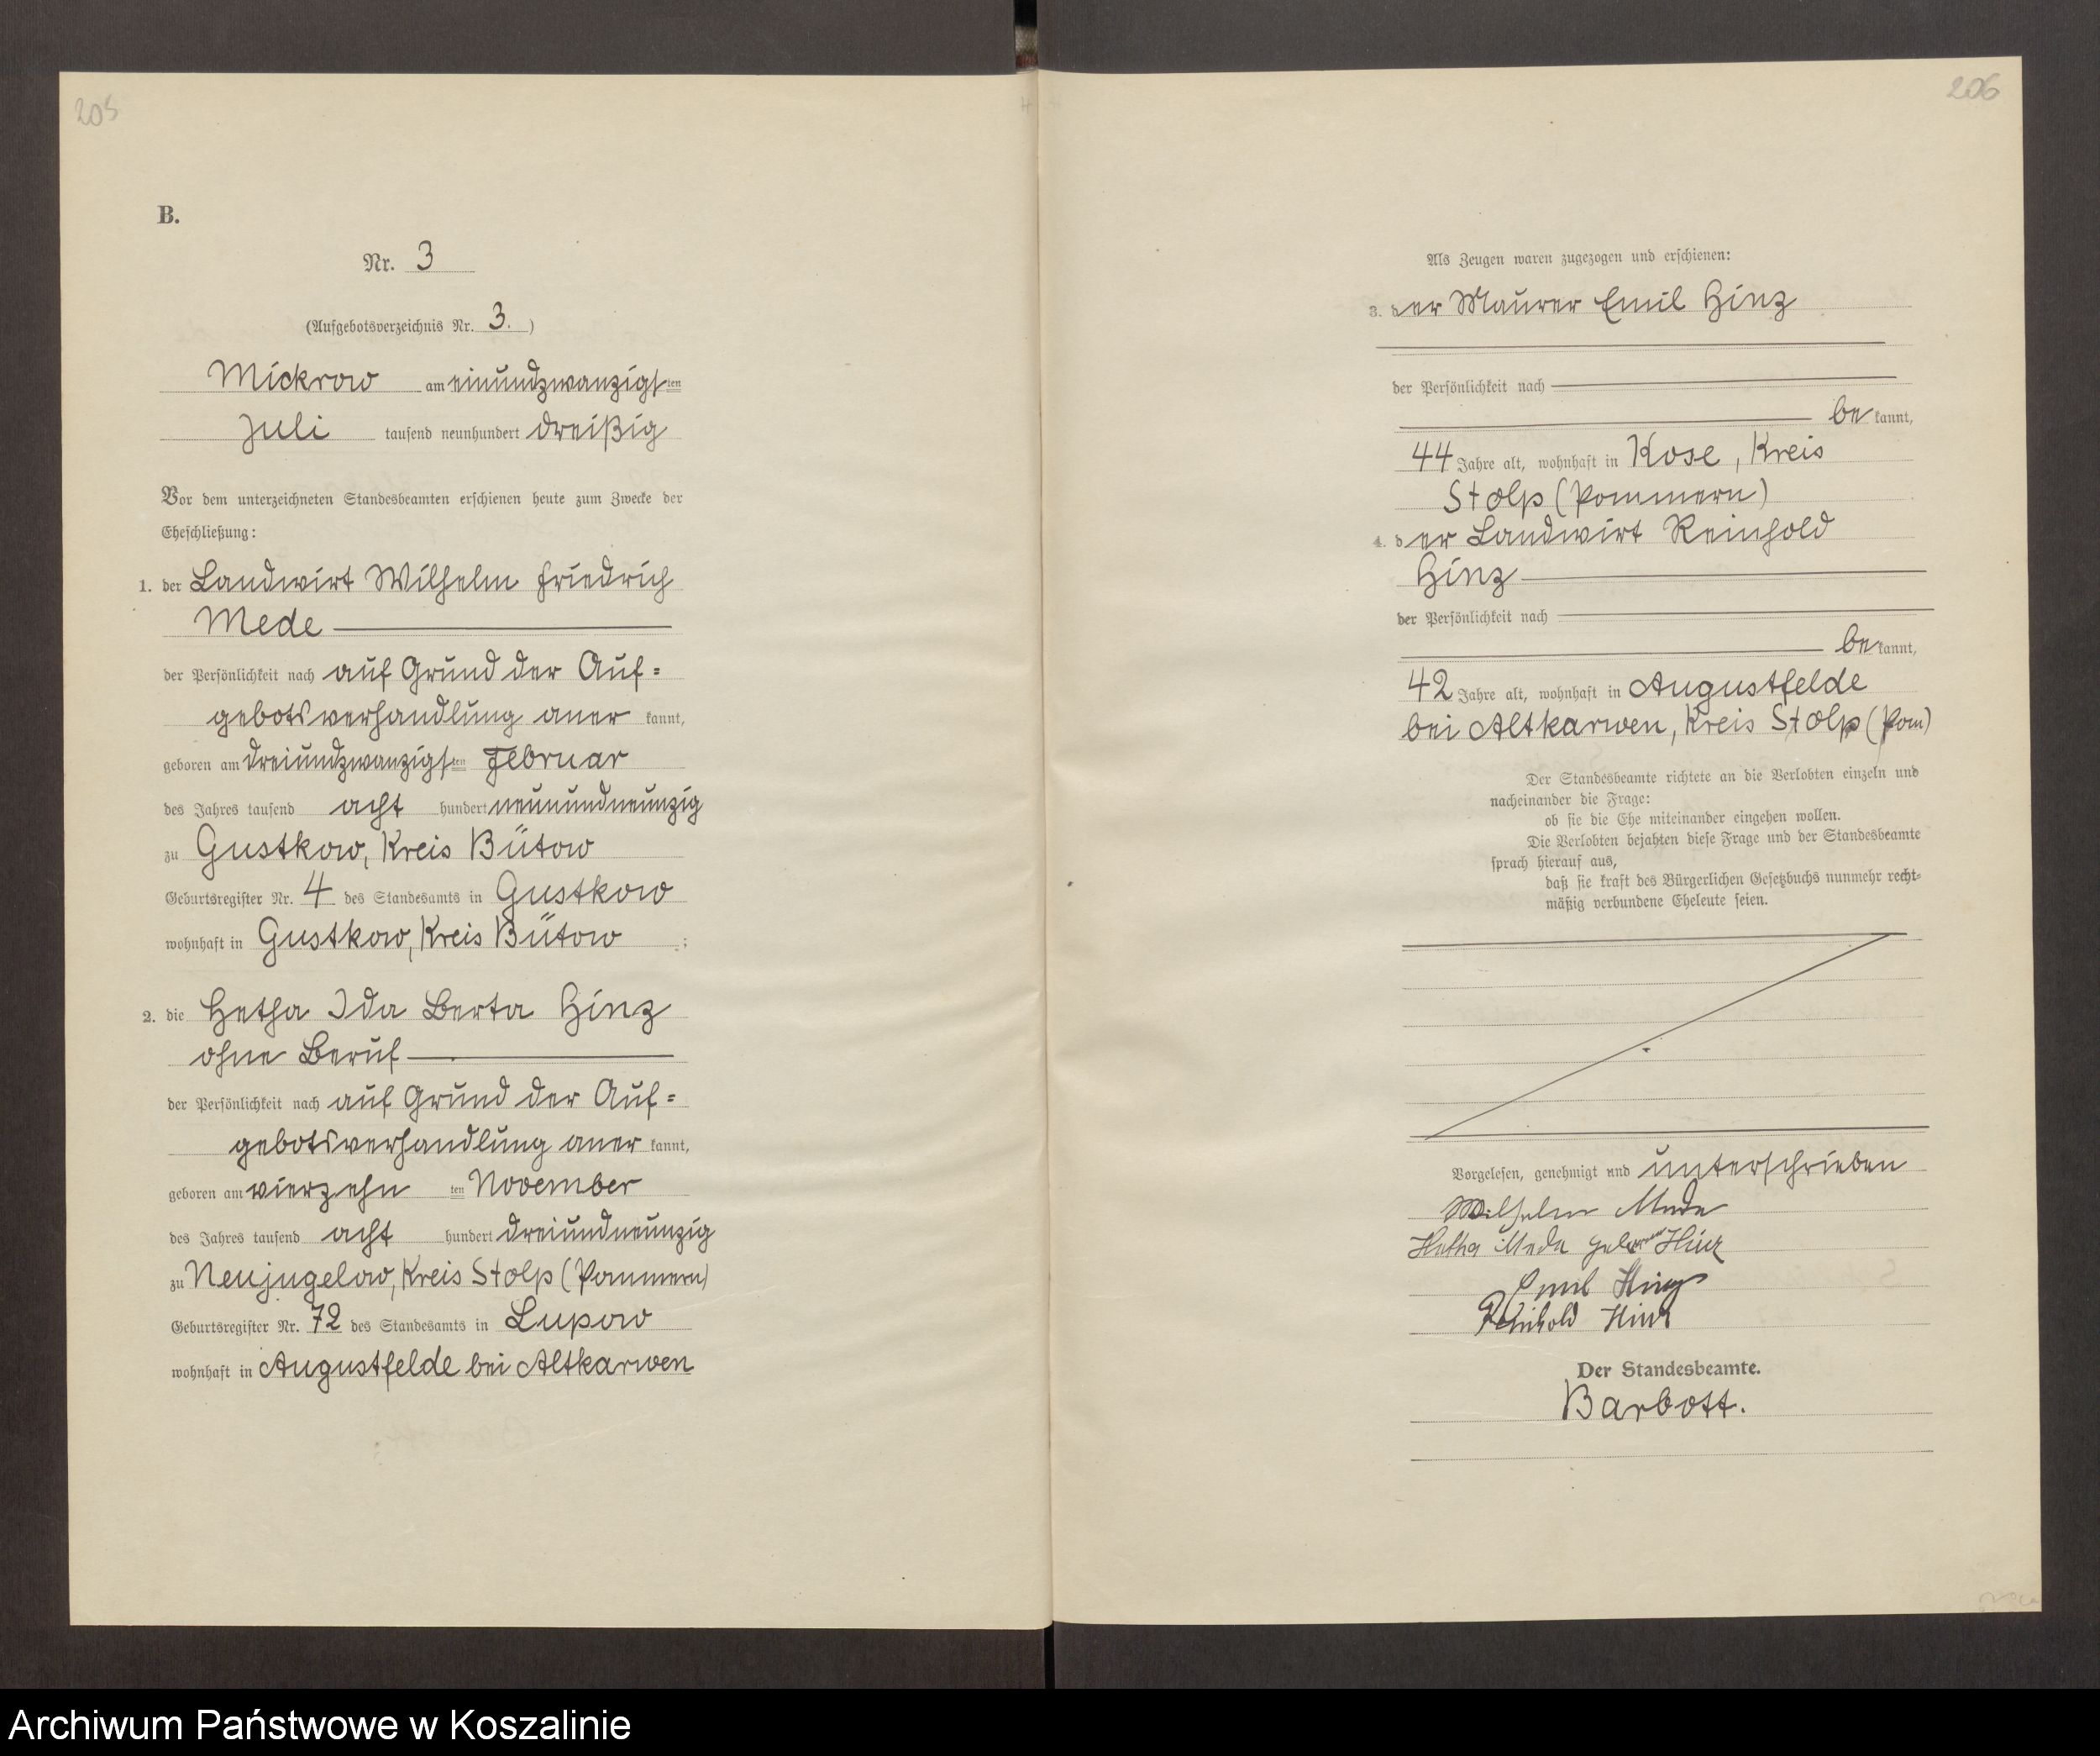 205
B.
Nr. 3
(Aufgebotsverzeichnis Nr. 3.)
Mickrow am einundzwanzigsten
Juli tausend neunhundert dreißig
Vor dem unterzeichneten Standesbeamten erschienen heute zum Zwecke der
Eheschließung:
1. der Landwirt Wilhelm Friedrich
Mede
der Persönlichkeit nach auf Grund der Auf=
gebotsverhandlung aner kannt,
geboren am dreiundzwanzigsten Februar
des Jahres tausend acht hundert neunundneunzig
zu Gustkow, Kreis Bütow
Geburtsregister Nr. 4 des Standesamts in Gustkow
wohnhaft in Gustkow, Kreis Bütow ;
2. die Hetha Ida Berta Hinz
ohne Beruf
der Persönlichkeit nach auf Grund der Auf=
gebotsverhandlung aner kannt,
geboren am vierzehn ten November
des Jahres tausend acht hundert dreiundneunzig
zu Neujugelow, Kreis Stolp (Pommern)
Geburtsregister Nr. 72 des Standesamts in Lupow
wohnhaft in Augustfelde bei Altkarwen
206
Als Zeugen waren zugezogen und erschienen:
3. der Maurer Emil Hinz
der Persönlichkeit nach
be kannt,
44 Jahre alt, wohnhaft in Kose, Kreis
Stolp (Pommern)
4. der Landwirt Reinhold
Hinz
der Persönlichkeit nach
be kannt,
42 Jahre alt, wohnhaft in Augustfelde
bei Altkarwen, Kreis Stolp (Pom)
Der Standesbeamte richtete an die Verlobten einzeln und
nacheinander die Frage:
ob sie die Ehe miteinander eingehen wollen.
Die Verlobten bejahten diese Frage und der Standesbeamte
sprach hierauf aus,
daß sie kraft des Bürgerlichen Gesetzbuchs nunmehr recht=
mäßig verbundene Eheleute seien.
Vorgelesen, genehmigt und unterschrieben
Wilhelm Mede
Hetha Mede geborene Hinz
Emil Hinz
Reinhold Hinz
Der Standesbeamte.
Barbott.
Archiwum Państwowe w Koszalinie